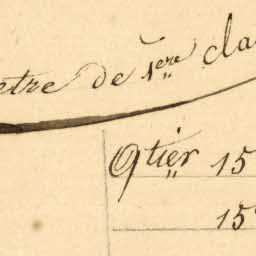 etre de 1ere cla
9tier 15
15